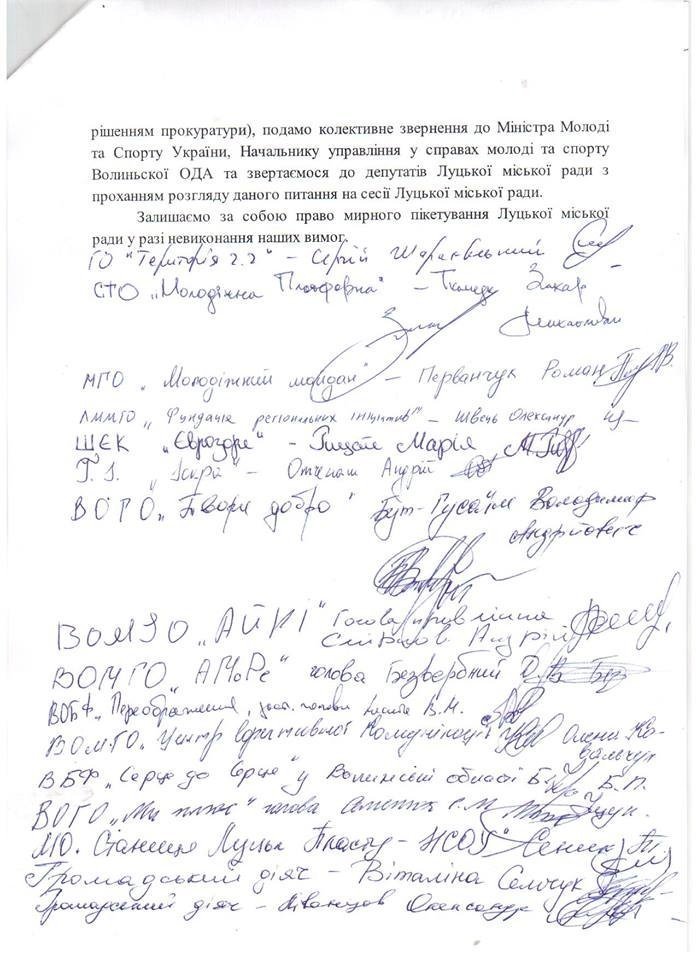 рішенням прокуратури), подамо колективне звернення до Міністра Молоді
та Спорту України, Начальнику управління у справах молоді та спорту
Волиньскої ОДА та звертаємося до депутатів Луцької міської ради з
проханням розгляду даного питання на сесії Луцької міської ради.
Залишаємо за собою право мирного пікетування Луцької міської
ради у разі невиконання наших вимог.
ГО "Територія 2.2" – Сергій
СТО "Молодіжна Платформа" – Захар
МГО "Молодіжний майдан" – Перванчук Роман
"Фундація регіональних ініціатив" – Швець Олександр
ШЕК "Євроздре" – Марія
"Іскра" – Андрій
ВОГО "Твори добро" Бут-Гусаїм Володимир
Андрійович
ВОМГО "АЙКІ" Голова правління
Андрій
ВОМГО "АМоРе" голова Безвербний
ВОБФ "Переображення" голови В.М.
ВОМГО "Центр Комунікації" Олена Ко-
вальчук
ВБФ "Серце до Серця" у Волинській області Б.П.
ВОГО "Ми плюс" голова
МО. Станиця Луцьк Пласту – НСОУ Сеник
Громадський діяч – Віталіна Сельчук
Громадський діяч – Олександр